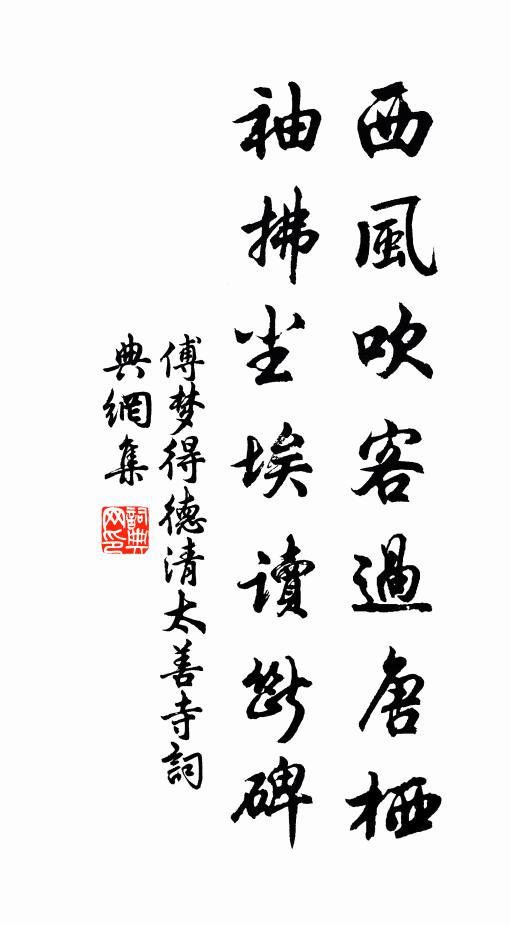 西風吹客過唐栖
袖拂尘埃讀斷碑
傅梦得德清太善寺詞
典網集
詞典網印